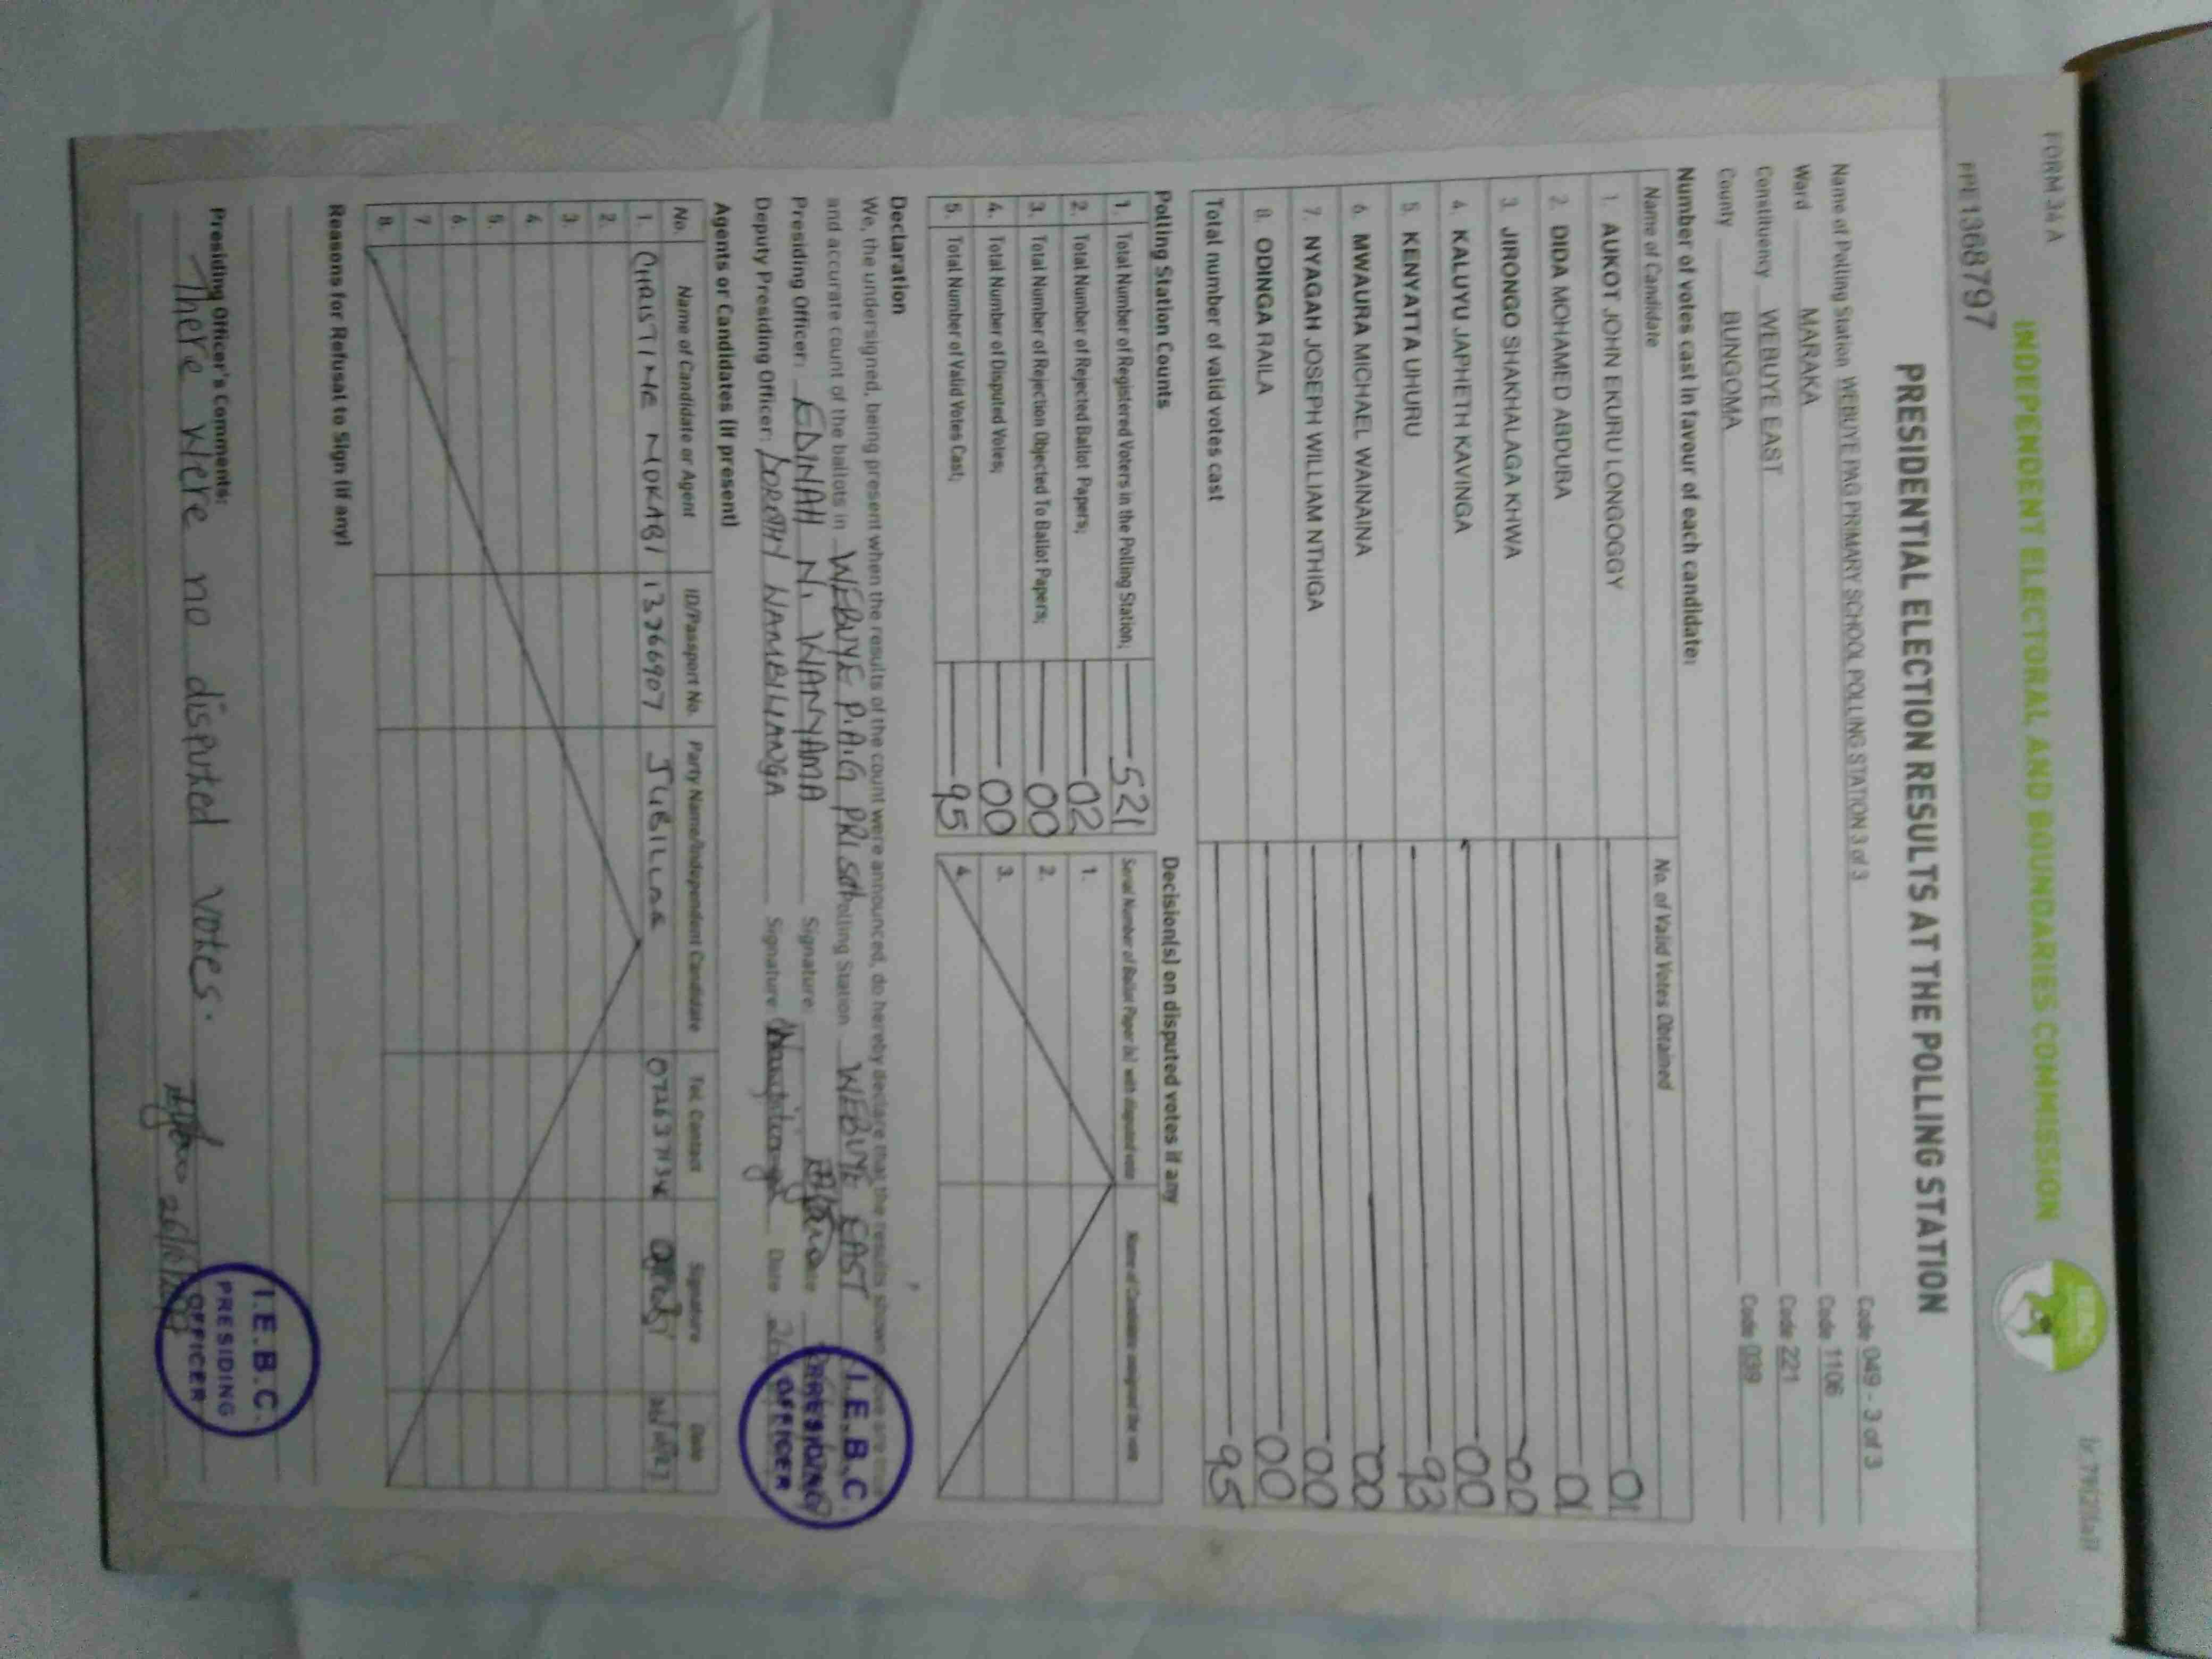 FORM 34 A
INDEPENDENT ELECTORAL AND BOUNDARIES COMMISSION
PPE1368797
PRESIDENTIAL ELECTION RESULTS AT THE POLLING STATION
Name of Polling Station WEBUYE PAG PRIMARY SCHOOL POLLING STATION 3 of 3 Code 049 - 3 of 3
Ward MARAKA Code 1106
Constituency WEBUYE EAST Code 221
County BUNGOMA Code 039
Number of votes cast in favour of each candidate:
Name of Candidate No. of Valid Votes Obtained
1. AUKOT JOHN EKURU LONGOGGY 01
2. DIDA MOHAMED ABDUBA 01
3. JIRONGO SHAKHALAGA KHWA 00
4. KALUYU JAPHETH KAVINGA 00
5. KENYATTA UHURU 93
6. MWAURA MICHAEL WAINAINA 00
7. NYAGAH JOSEPH WILLIAM NTHIGA 00
8. ODINGA RAILA 00
Total number of valid votes cast 95
Polling Station Counts
1. Total Number of Registered Voters in the Polling Station; 521
2. Total Number of Rejected Ballot Papers; 02
3. Total Number of Rejection Objected To Ballot Papers; 00
4. Total Number of Disputed Votes; 00
5. Total Number of Valid Votes Cast; 95
Decision(s) on disputed votes if any
Serial Number of Ballot Paper (s) with disputed vote Name of Candidate assigned the vote
1.
2.
3.
4.
Declaration
We, the undersigned, being present when the results of the count were announced, do hereby declare that the results shown above are
and accurate count of the ballots in WEBUYE P.A.G PRI SCH Polling Station WEBUYE EAST
Presiding Officer: EDINAH N. WANYAMA Signature: Date
Deputy Presiding Officer: NAMBILIANGA Signature Date
I.E.B.C.
PRESIDING
OFFICER
Agents or Candidates (if present)
No. Name of Candidate or Agent ID/Passport No. Party Name/Independent Candidate Tel. Contact Signature Date
1. CHRISTINE MOKABI 13266907 JUBILLEE
2.
3.
4.
5.
6.
7.
8.
Reasons for Refusal to Sign (if any)
Presiding Officer's Comments:
There were no disputed votes.
I.E.B.C.
PRESIDING
OFFICER